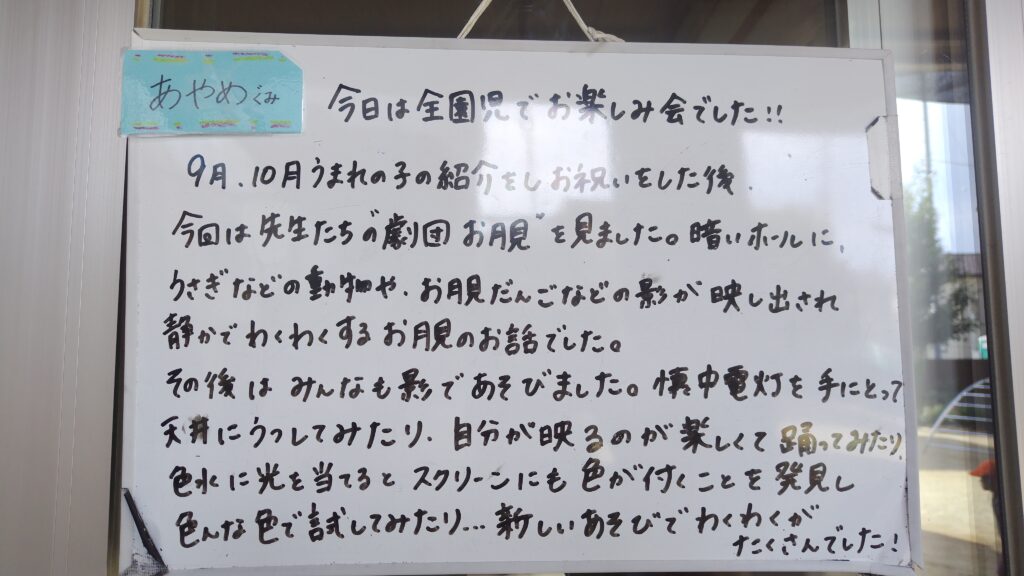 あやめぐみ
今日は全園児でお楽しみ会でした!!
9月、10月うまれの子の紹介をしお祝いをした後、
今回は先生たちの"劇団 お月見"を見ました。暗いホールに、
うさぎなどの動物や、お月見だんごなどの影が映し出され
静かでわくわくするお月見のお話でした。
その後はみんなも影であそびました。懐中電灯を手にとって
天井にうつしてみたり、自分が映るのが楽しくて踊ってみたり、
色水に光を当てるとスクリーンにも色が付くことを発見し
色んな色で試してみたり...新しいあそびでわくわくが
たくさんでした!